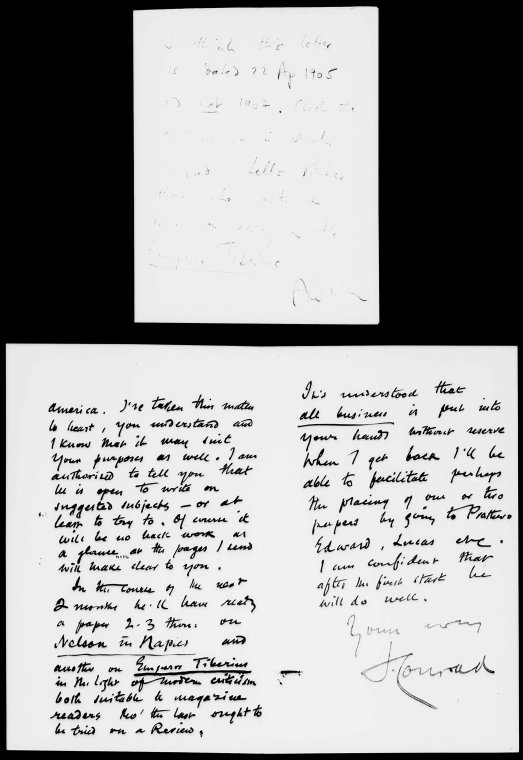 I think this letter
is dated 22 Ap 1905
and not 1907. Check the
in which
tells
that he wants to
on the
Emperor Tiberius
america. I've taken this matter
to heart, you understand and
I know that it may suit
your purposes as well. I am
authorised to tell you that
he is open to write on
suggested subjects – or at
least to try to. Of course it
will be no hack work as
a glance at the pages I send
will make clear to you.
In the course of the next
2 months he'll have ready
a paper 2-3 thou: on
Nelson in Naples and
another on Emperor Tiberius
in the light of modern criticism
both suitable to magazine
readers tho' the last ought to
be tried on a Review.
It is understood that
all business is put into
your hands without reserve
When I get back I'll be
able to facilitate perhaps
the placing of one or two
papers by going to Prothero
Edward, Lucas etc.
I am confident that
after the first start he
will do well.
Yours ever
J. Conrad